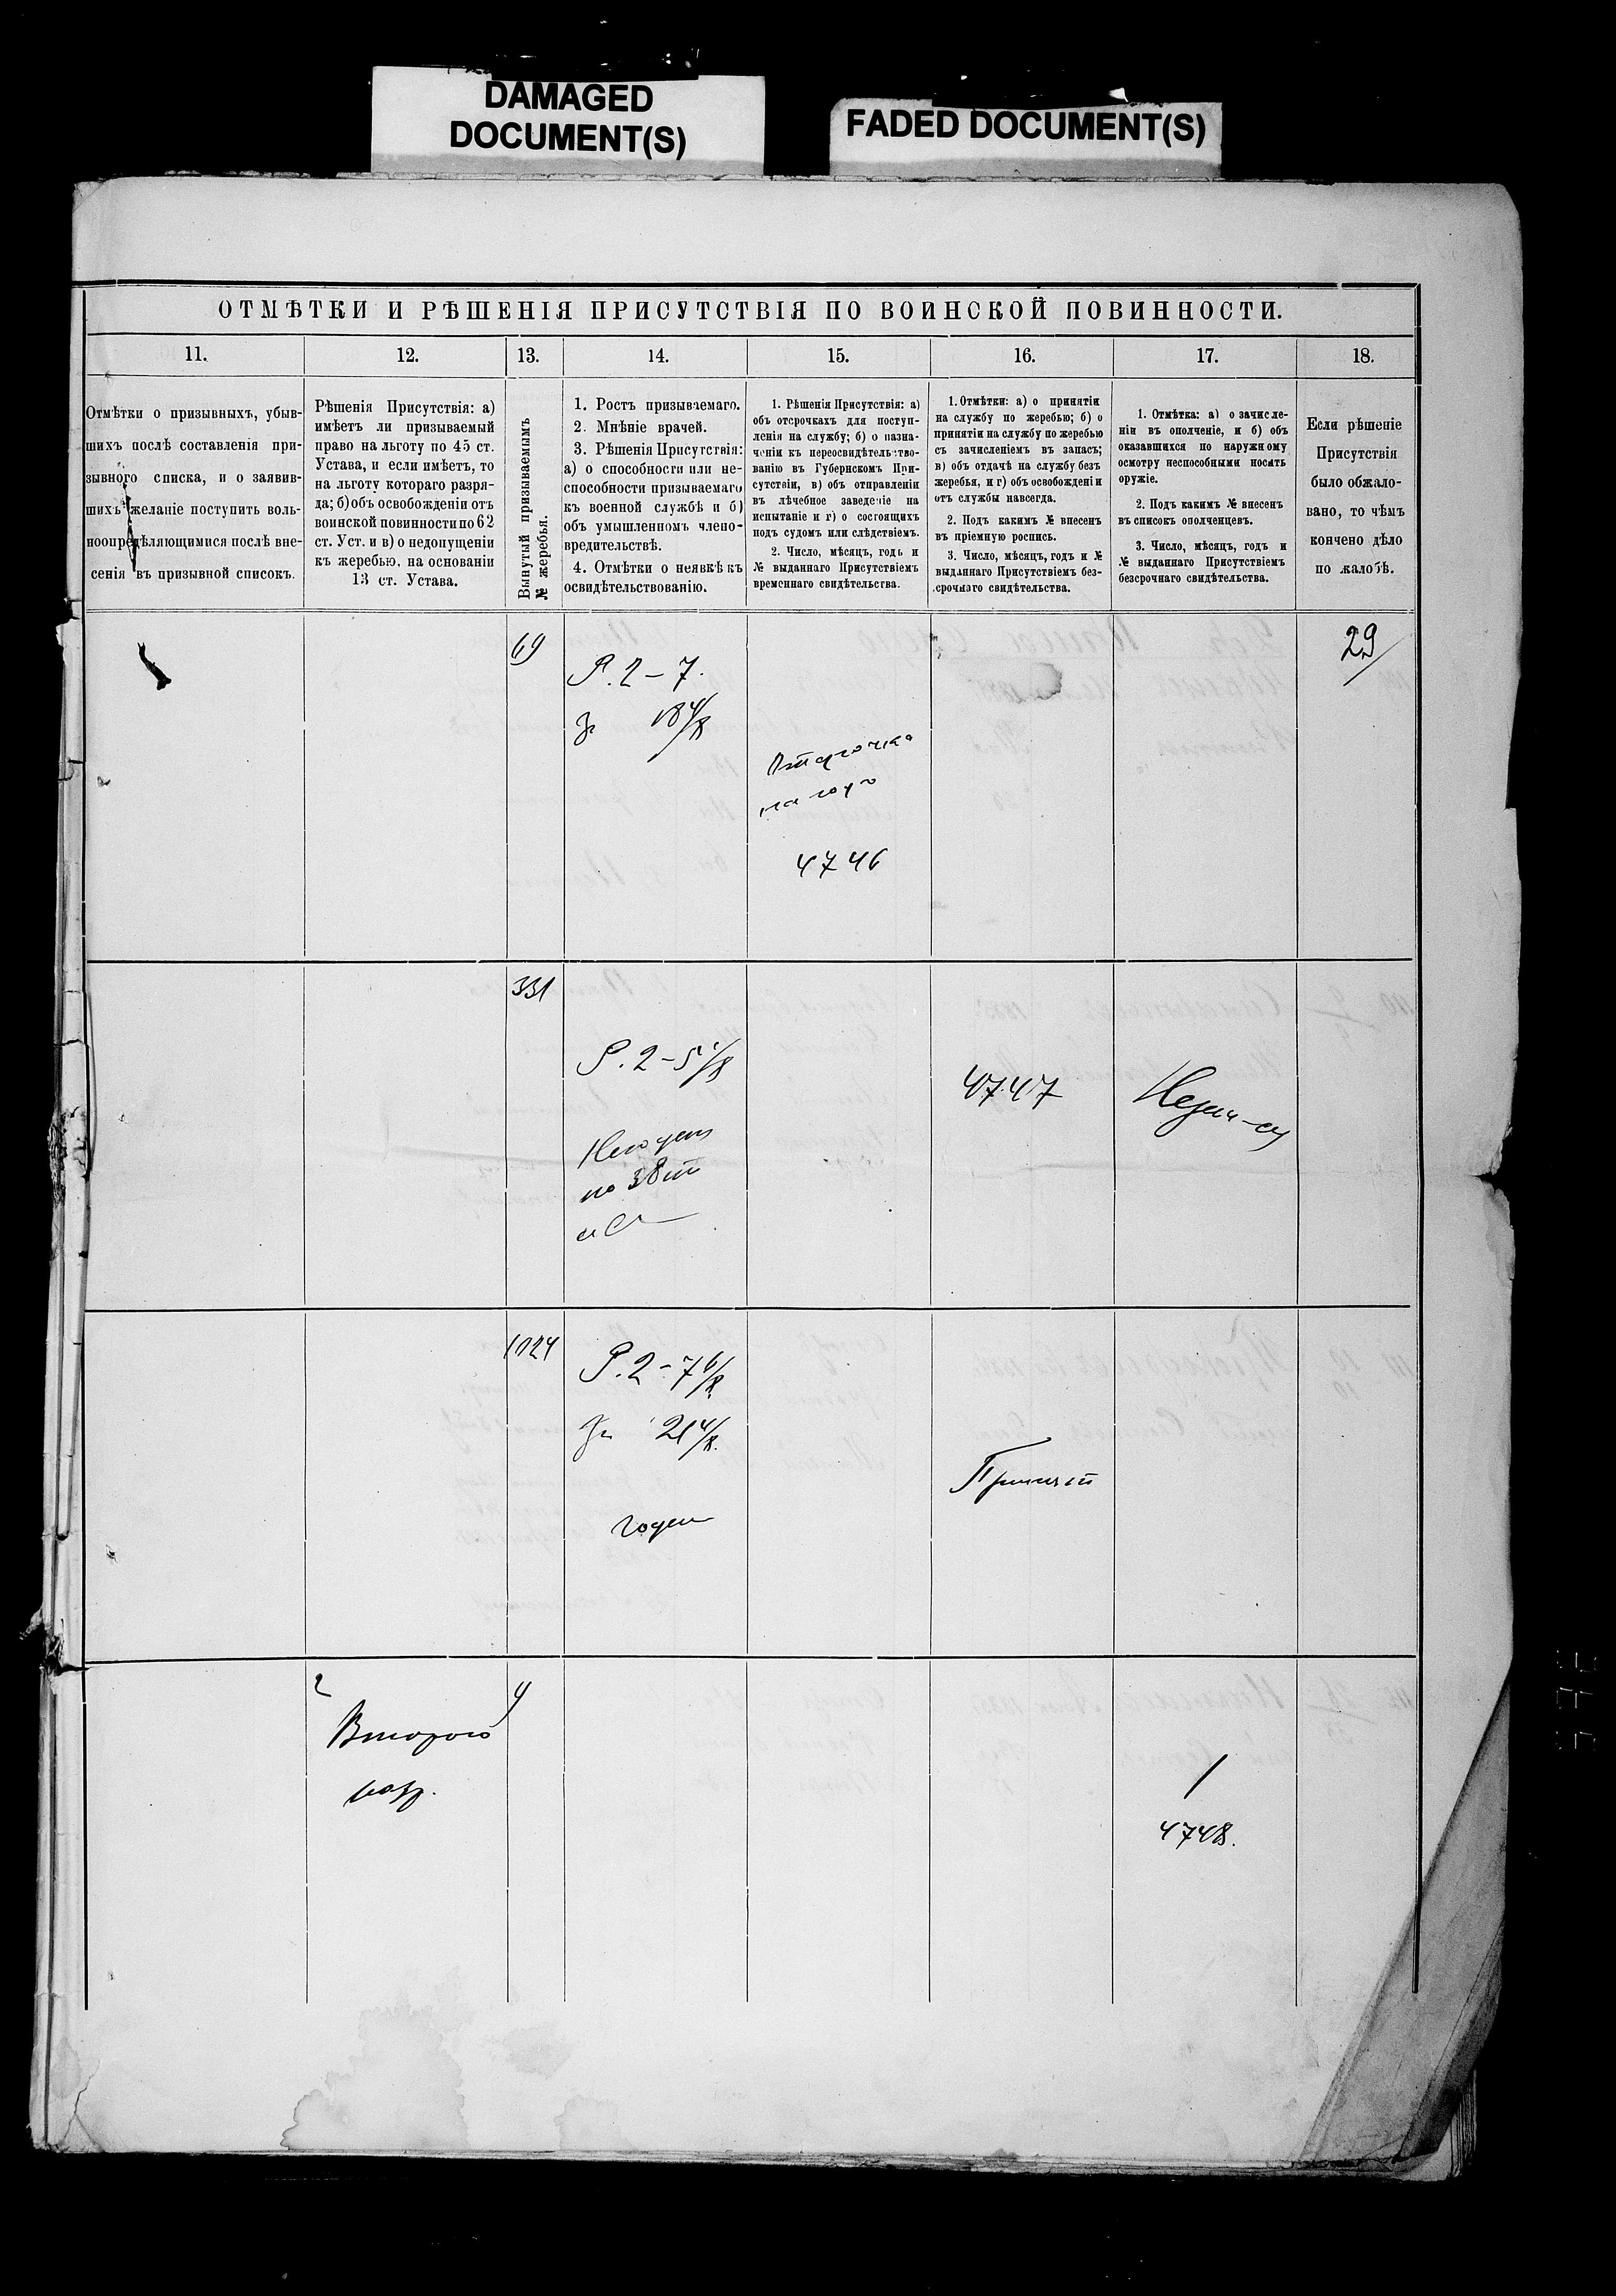 DAMAGED
DOCUMENT(S)
FADED DOCUMENT(S)
ОТМѢТКИ И РѢШЕНІЯ ПРИСУТСТВІЯ ПО ВОИНСКОЙ ПОВИННОСТИ.
11.
12.
13.
14.
15.
16.
17.
18.
Отмѣтки о призывныхъ, убыв-
шихъ послѣ составленія при-
зывного списка, и о заявив-
шихъ желаніе поступить воль-
ноопредѣляющимися послѣ вне-
сенія въ призывной списокъ.
Рѣшенія Присутствія: а)
имѣетъ ли призываемый
право на льготу по 45 ст.
Устава, и если имѣетъ, то
на льготу котораго разря-
да; б) объ освобожденіи отъ
воинской повинности по 62
ст. Уст. и в) о недопущеніи
къ жеребью, на основаніи
13 ст. Устава.
Вынутый призываемымъ
№ жеребья.
1. Ростъ призываемаго.
2. Мнѣніе врачей.
3. Рѣшенія Присутствія:
а) о способности или не-
способности призываемаго
къ военной службѣ и б)
объ умышленномъ члено-
вредительствѣ.
4. Отмѣтки о неявкѣ къ
освидѣтельствованію.
1. Рѣшенія Присутствія: а)
объ отсрочкахъ для поступ-
ленія на службу; б) о назна-
ченіи къ переосвидѣтельство-
ванію въ Губернскомъ При-
сутствіи, в) объ отправленіи
въ лѣчебное заведеніе на
испытаніе и г) о состоящихъ
подъ судомъ или слѣдствіемъ.
2. Число, мѣсяцъ, годъ и
№ выданнаго Присутствіемъ
временнаго свидѣтельства.
1. Отмѣтки: а) о принятіи
на службу по жеребью; б) о
принятіи на службу по жеребью
съ зачисленіемъ въ запасъ;
в) объ отдачѣ на службу безъ
жеребья, и г) объ освобожденіи
отъ службы навсегда.
2. Подъ какимъ № внесенъ
въ пріемную роспись.
3. Число, мѣсяцъ, годъ и №
выданнаго Присутствіемъ без-
срочнаго свидѣтельства.
1. Отмѣтка: а) о зачисле-
ніи въ ополченіе, и б) объ
оказавшихся по наружному
осмотру неспособными носить
оружіе.
2. Подъ какимъ № внесенъ
въ списокъ ополченцевъ.
3. Число, мѣсяцъ, годъ и
№ выданнаго Присутствіемъ
безсрочнаго свидѣтельства.
Если рѣшеніе
Присутствія
было обжало-
вано, то чѣмъ
кончено дѣло
по жалобѣ.
69
Р. 2 – 7.
18 4/8
Отсрочка
на годъ
4746
29
331
Р. 2 – 5 1/8
Негоденъ
по 38 ст
4747
1024
Р. 2 – 7 6/8
21 4/8.
Годенъ
Принятъ
Второго
разр.
4748.